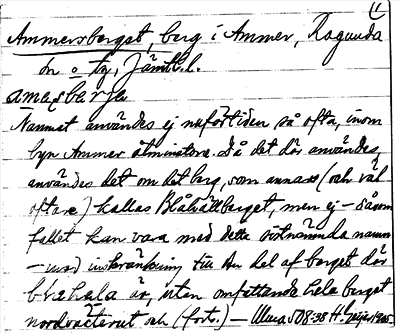 1
Ammersberget, berg i Ammer, Ragunda
sn o tg, Jämtl. l.
amaʂbærjə
Namnet användes ej nuförtiden så ofta, inom
byn Ammer åtminstone. Då det där användes,
användes det om det berg, som annars (och väl
oftare) kallas Blåhällberget, men ej – såsom
fallet kan vara med detta sistnämnda namn
– med inskränkning till den del af berget där
är, utan omfattande hela berget
nordvästerut och (forts.) –